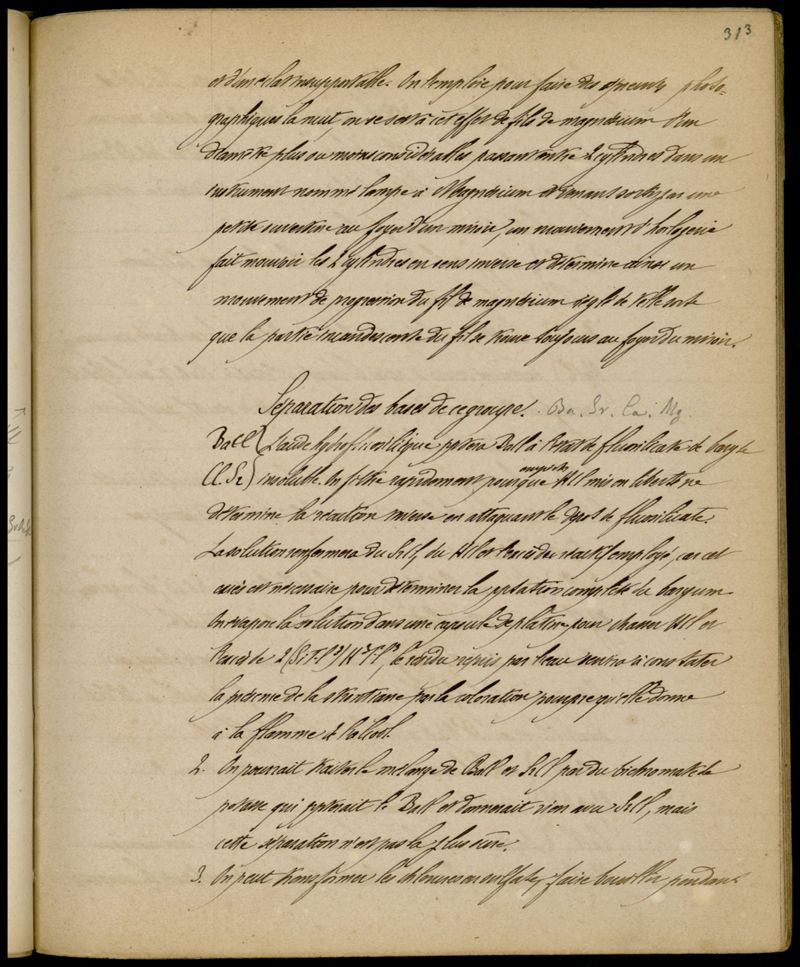 313
et d'un éclat insupportable. On l'emploie pour faire des épreuves photo-
graphiques la nuit, on se sert à cet effet de fils de magnésium d'un
diamètre plus ou moins considérables passant entre 2 cylindres dans un
instrument nommé lampe à Magnésium et venant sortir par une
petite ouverture au foyer d'un miroir, un mouvement d'horlogerie
fait mouvoir les 2 cylindres en sens inverse et détermine ainsi un
mouvement de progression du fil de magnésium réglé de telle sorte
que la partie incandescente du fil se trouve toujours au foyer du miroir.
Séparation des bases de ce groupe. Ba. Sr. Ca. Mg.
BaCl { L'acide hydrofluosilicique ptera BaCl à l'état de fluosilicate de baryte
Cl.Sr } insoluble. On filtre rapidement pour que HCl mis en liberté ne
détermine la réaction inverse en attaquant le dépôt de fluosilicate.
La solution renfermera du SrCl, du HCl et l'excès du réactif employé, car cet
excès est nécessaire pour déterminer la pptation complète du baryum
On évapore la solution dans une capsule de platine pour chasser HCl et
l'excès de 2(SiFl³)H³Fl³, le résidu repris par l'eau servira à constater
la présence de la strontiane par la coloration pourpre qu'elle donne
à la flamme de l'alcool.
2. On pourrait traiter le mélange de BaCl et SrCl par du bichromate de
potasse qui ppterait le BaCl et donnerait rien avec SrCl, mais
cette séparation n'est pas la plus sûre.
3. On peut transformer les chlorures en sulfates, faire bouillir pendant